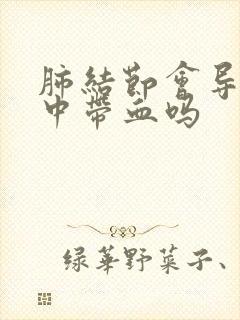 肺結節會导
中帶血吗
绿華野菜子、